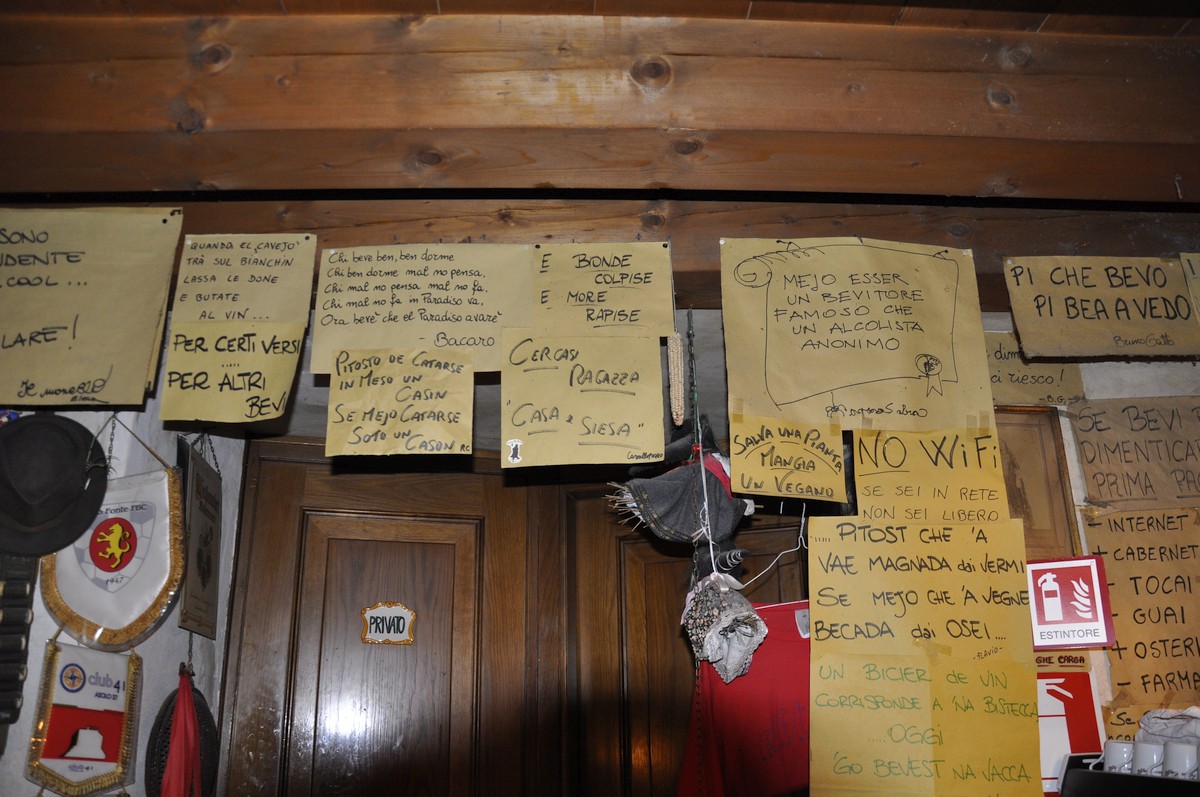 SONO
COOL ...
LARE!
QUANDO EL CAVEJO
TRÀ SUL BIANCHIN
LASSA LE DONE
E BUTATE
AL VIN ...
PER CERTI VERSI
.....
PER ALTRI
BEVI
Chi beve ben, ben dorme
Chi ben dorme mal no pensa,
Chi mal no pensa mal no fa.
Chi mal no fa in Paradiso va,
Ora bevè che el Paradiso avarè
- Bacaro
PITOSTO DE CATARSE
IN MESO UN
CASIN
SE MEJO CATARSE
SOTO UN
CASON RC
E BONDE
COLPISE
E MORE
RAPISE
CERCASI
RAGAZZA
"CASA e SIESA"
MEJO ESSER
UN BEVITORE
FAMOSO CHE
UN ALCOLISTA
ANONIMO
SALVA UNA PIANTA
MANGIA
UN VEGANO
NO WiFi
SE SEI IN RETE
NON SEI LIBERO
..... PITOST CHE 'A
VAE MAGNADA dai VERMI
SE MEJO CHE 'A VEGNE
BECADA dai OSEI ....
- FLAVIO -
UN BICIER de VIN
CORRISPONDE A 'NA BISTECCA
..... OGGI
'GO BEVEST NA VACCA
PI CHE BEVO
PI BEA A VEDO
ci riesco!
SE BEVI
DIMENTICA
PRIMA
- INTERNET
+ CABERNET
- TOCAI
- GUAI
+ OSTERI
- FARMA
Se
PRIVATO
ESTINTORE
GHE CARGA
1947
club 41
ASOLO 57
club 41